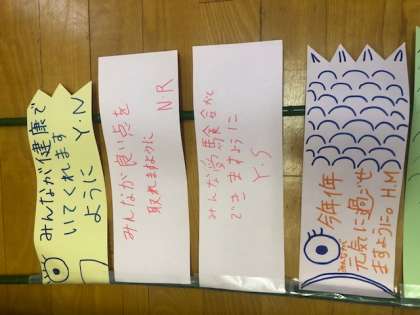 みんなが健康で
いてくれます
ように Y.N
みんなが良い点を
取れますように
N.R
みんな受験合格
できますように
Y.S
今年1年
みんなが
元気に過ごせ
ますように。H.M